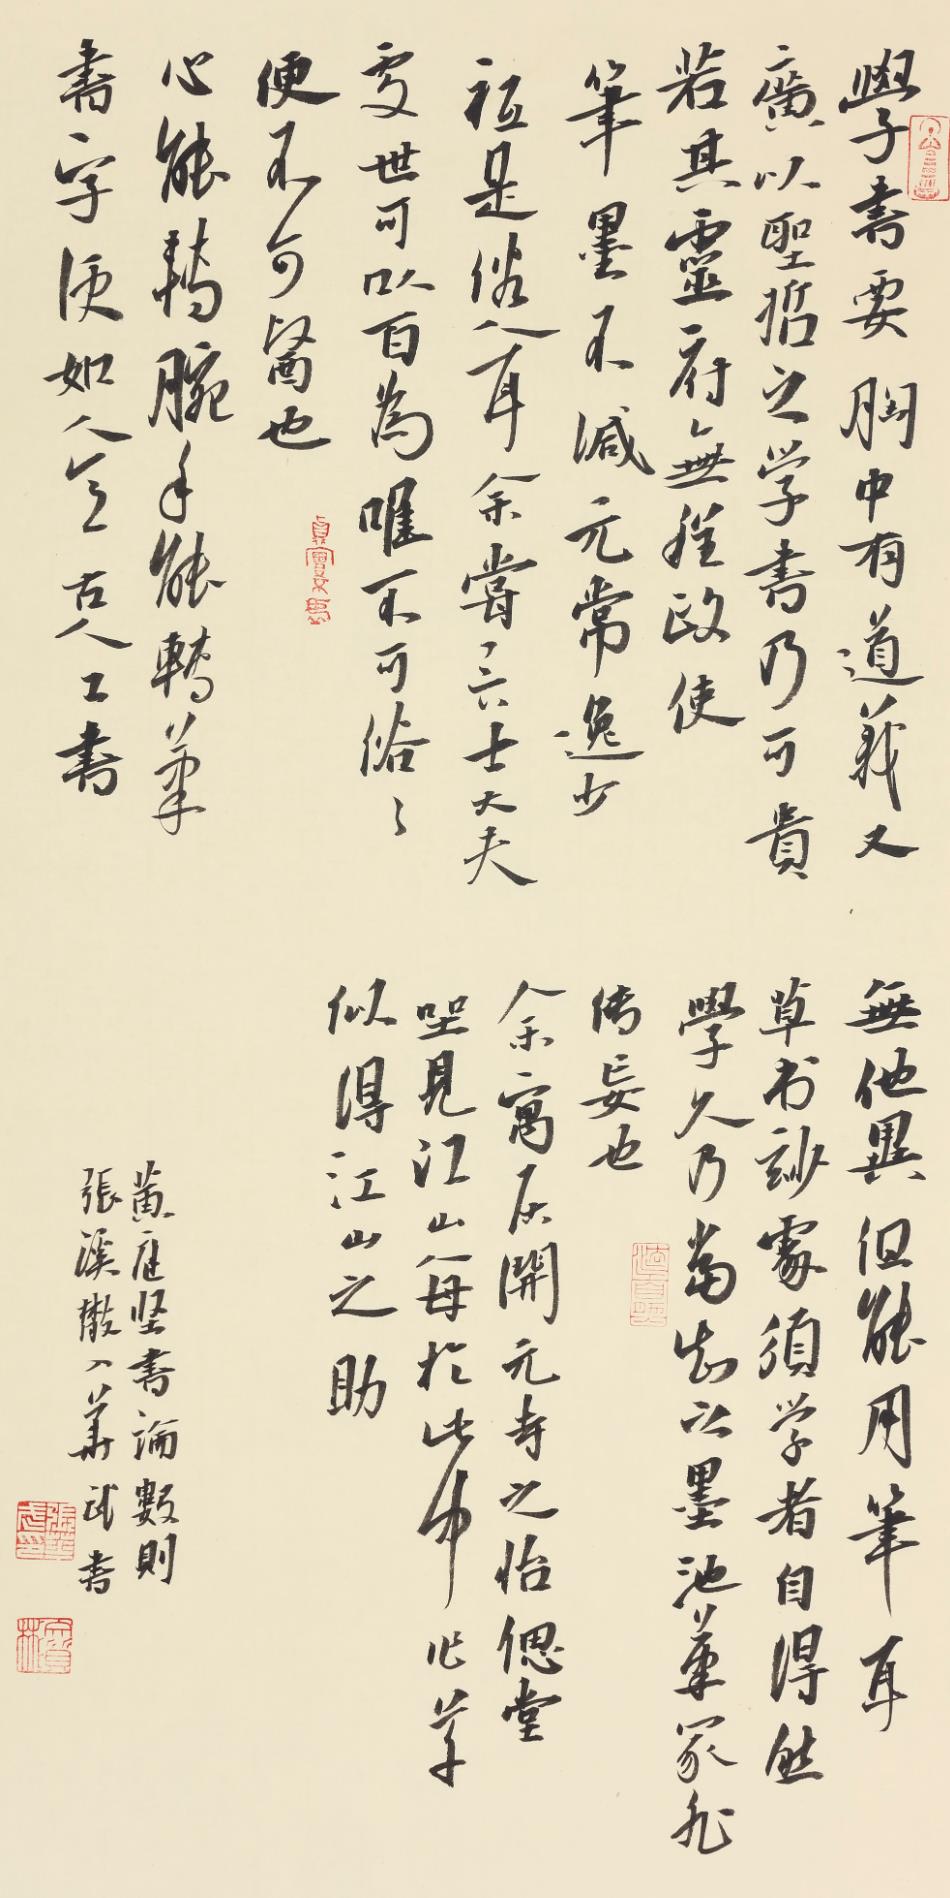 學书要胸中有道義又
廣以聖哲之学書乃可貴
若其靈府無程政使
筆墨不減元常逸少
祗是俗人耳余嘗言士大夫
处世可以百為唯不可俗々
便不可醫也
心能轉腕手能轉筆
書字便如人意古人工書
無他異但能用筆耳
草书妙處須学者自得然
學久乃當知之墨池筆冢非
传妄也
余寓居開元寺之怡偲堂
坐見江山每於此中作草
似得江山之助
黄庭坚書論數則
張溪散人華武書